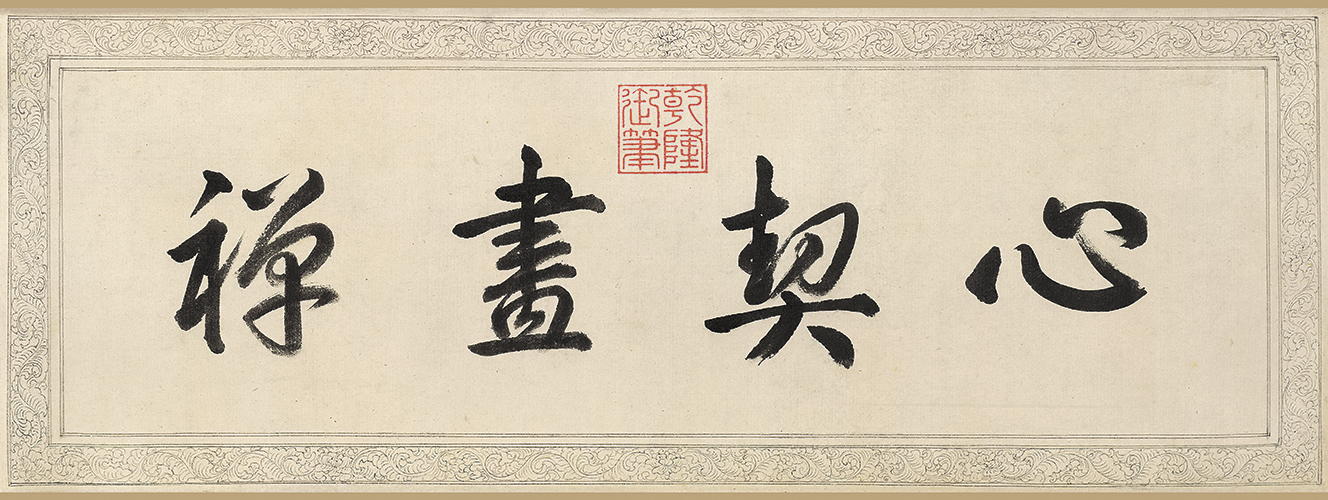 心契畫禪
乾隆
御筆